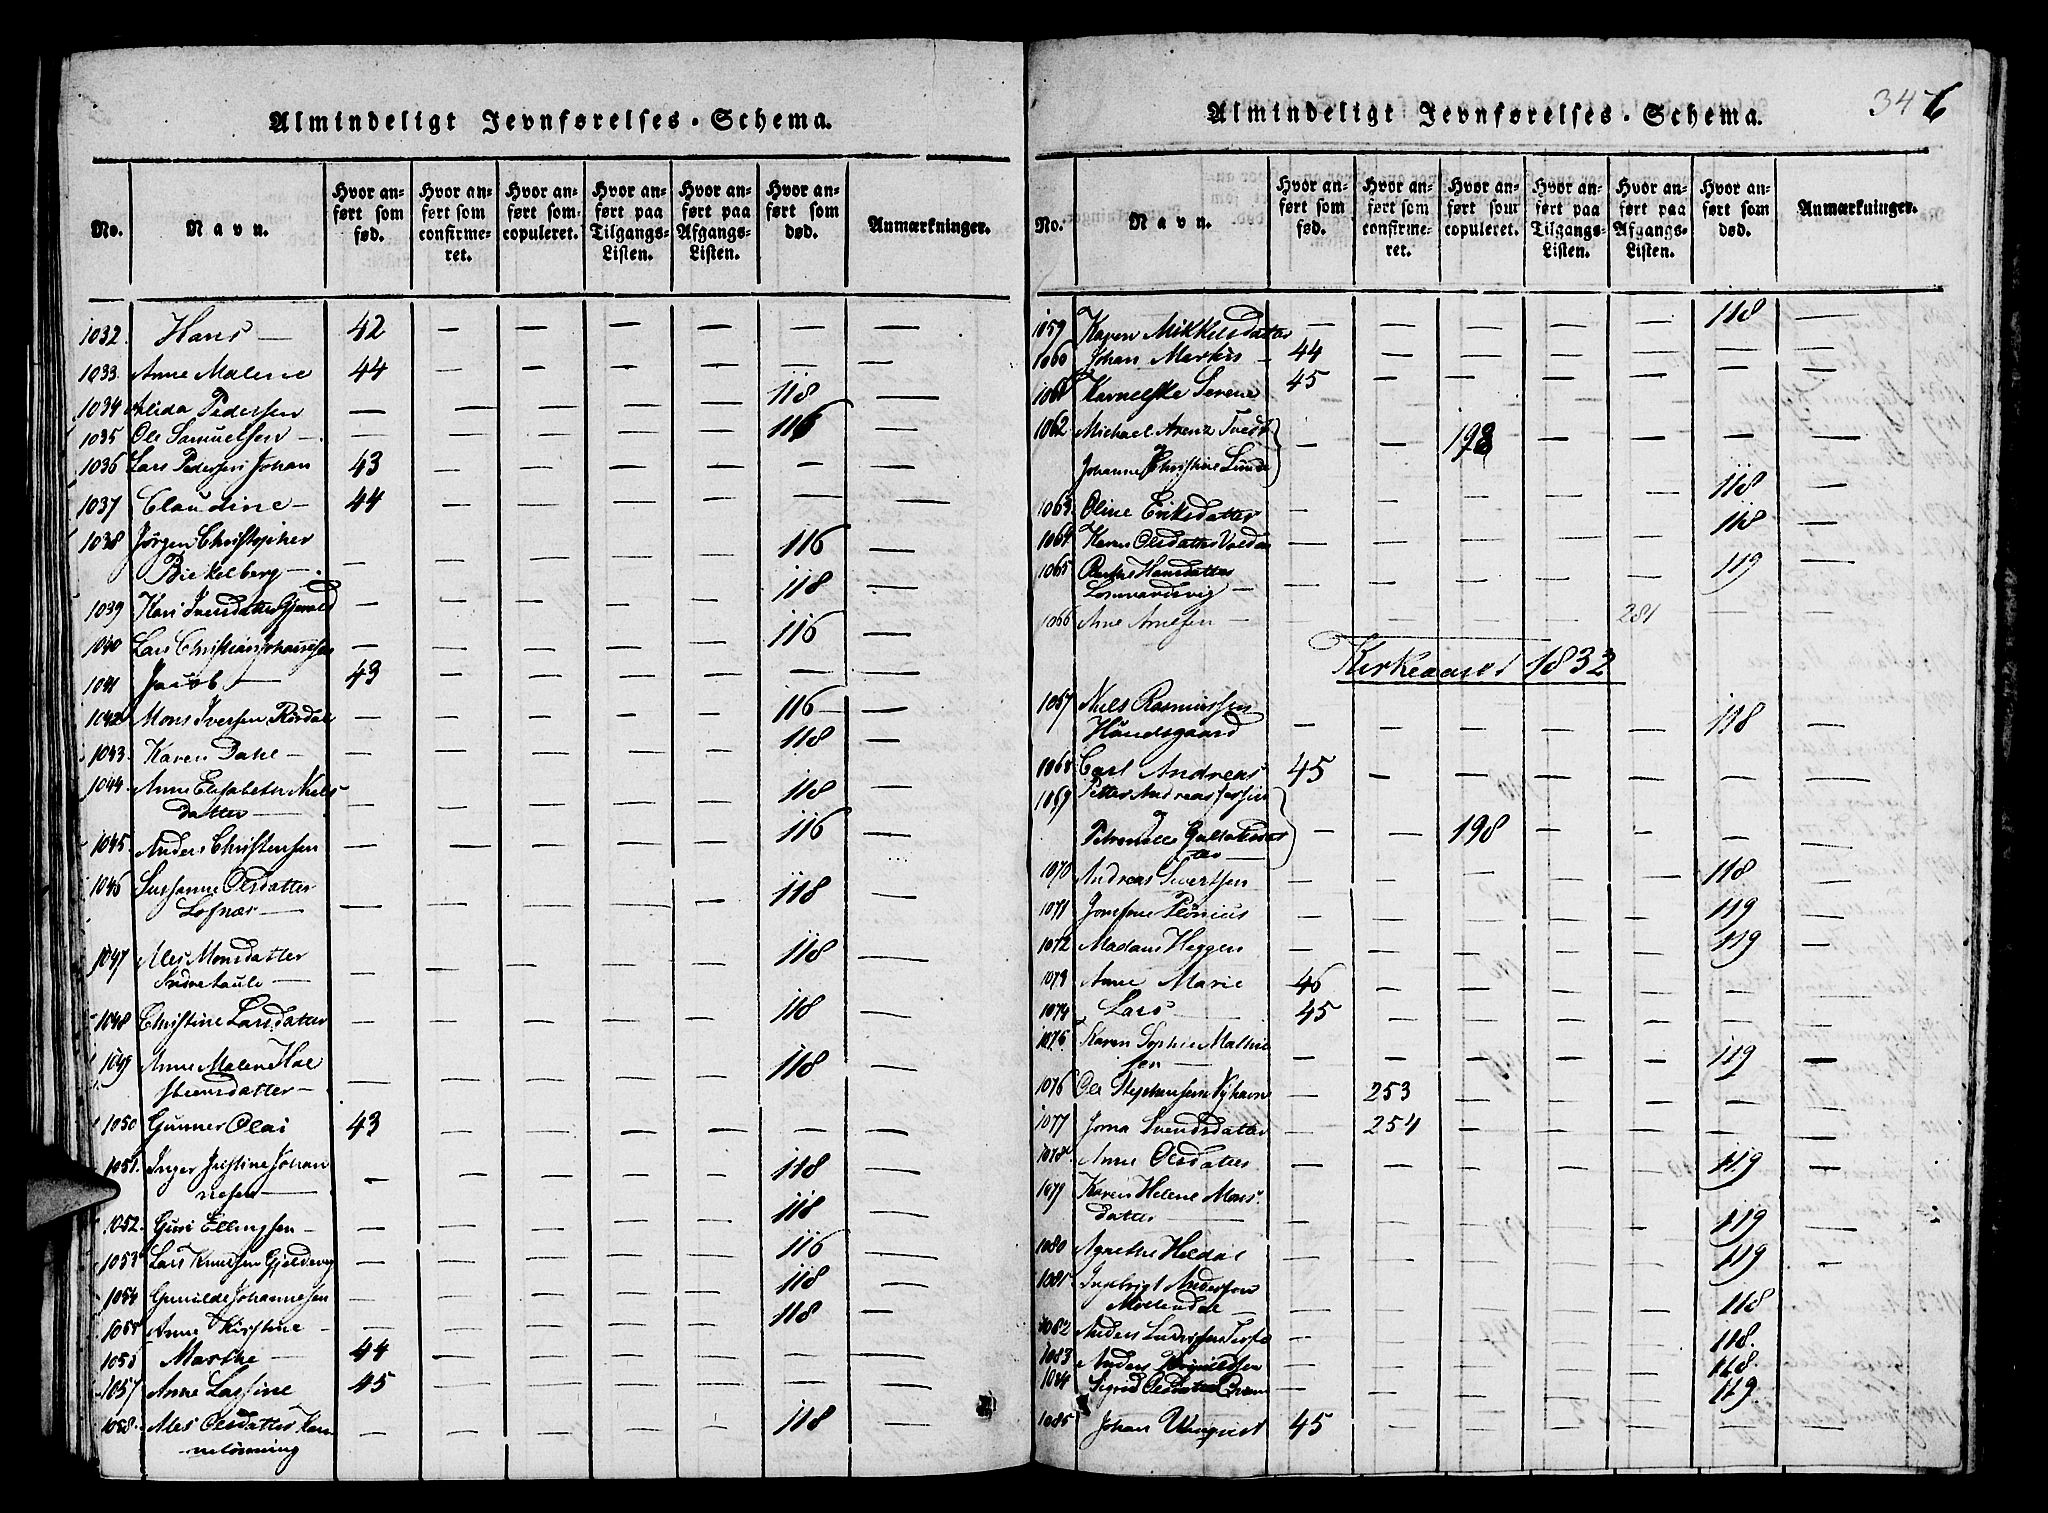 Almindeligt Jevnførelses-Schema.
No. Navn. Hvor anført som fød. Hvor anført som confirmeret. Hvor anført som copuleret. Hvor anført paa Tilgangs-Listen. Hvor anført paa Afgangs-Listen. Hvor anført som død. Anmærkninger.
1032. Hans — 42 — — — — — —
1033. Anne Malene 44 — — — — — —
1034 Alida Pedersen — — — — — 118 —
1035 Ole Samuelsen — — — — — — 116 —
1036 Lars Pedersen Johan 43 — — — — — —
1037 Claudine — 44 — — — — — —
1038 Jørgen Christopher
Bickelberg — — — — — — 116 —
1039 Kari Iversdatter — — — — — 118 —
1040 Lars Christian Johannesen — — — — — 116 —
1041 Jacob — 43 — — — — — —
1042 Mons Iversen — — — — — 116 —
1043. Karen Dahl — — — — — — 118 —
1044. Anne Elisabeth Niels
datter — — — — — — 118 —
1045. Anders Christensen — — — — — 116
1046 Susanne Olsdatter
— — — — — — 118 —
1047 Ales Monsdatter
— — — — — — 118 —
1048 Christine Larsdatter — — — — — 118 —
1049 Anne Malen Hol
stensdatter — — — — — — 118 —
1050 Gunner Olai 43 — — — — — —
1051. Inger Johan
nesen — — — — — — 118 —
1052. Guri Ellingsen — — — — — — 118 —
1053 Lars Knudsen — — — — — 116 —
1054 Gunilde Johannesen — — — — — 118 —
1055 Anne Kirstine — — — — — 118 —
1056 Marthe — 44 — — — — — —
1057 Anne Lassine 45 — — — — — —
1058. Ales Olsdatter
— — — — — 118 —
Almindeligt Jevnførelses-Schema. 346
No. Navn. Hvor anført som fød. Hvor anført som confirmeret. Hvor anført som copuleret. Hvor anført paa Tilgangs-Listen. Hvor anført paa Afgangs-Listen. Hvor anført som død. Anmærkninger.
1059 Karen Mikkelsdatter — — — — — 118 —
1060 Johan Markus — 44 — — — — — —
1061 Serene 45 — — — — — —
1062 Michael Arenz Tvedt
Johanne Christine Lunde — — 198 — — — —
1063. Oline Eriksdatter — — — — — 118 —
1064 Karen Olsdatter — — — — — 118 —
1065 Hansdatter
— — — — — — 119 —
1066 Arne Arnesen — — — — — 281 — —
Kirkeaaret 1832
1067 Niels Rasmussen
Haudsgaard — — — — — 118 —
1068 Carl Andreas 45 — — — — — —
1069 Petter Andreas
og
Petronelle — — 198 — — — —
1070 Andreas Sivertsen — — — — — 118 —
1071 Josefine — — — — — 119 —
1072 Madam Heggen — — — — — 119 —
1073 Anne Marie 46 — — — — — —
1074 Lars — 45 — — — — — —
1075. Karen Sophie Mathie
sen — — — — — — 119 —
1076 Ole Stephansen Nyhavn — 253 — — — — —
1077 Svendsdatter — 254 — — — — —
1078 Anne Olsdatter — — — — — 119 —
1079 Karen Helene Mons
datter — — — — — — 119 —
1080 Agnethe Heldal — — — — — 119 —
1081 Ingbrigt Andersen
Møllendal — — — — — — 118 —
1082 Anders — — — — — 118.
1083 Anders — — — — — 118.
1084 Sigrid Olsdatter — — — — — 119.
1085 Johan 45 — — — — — —